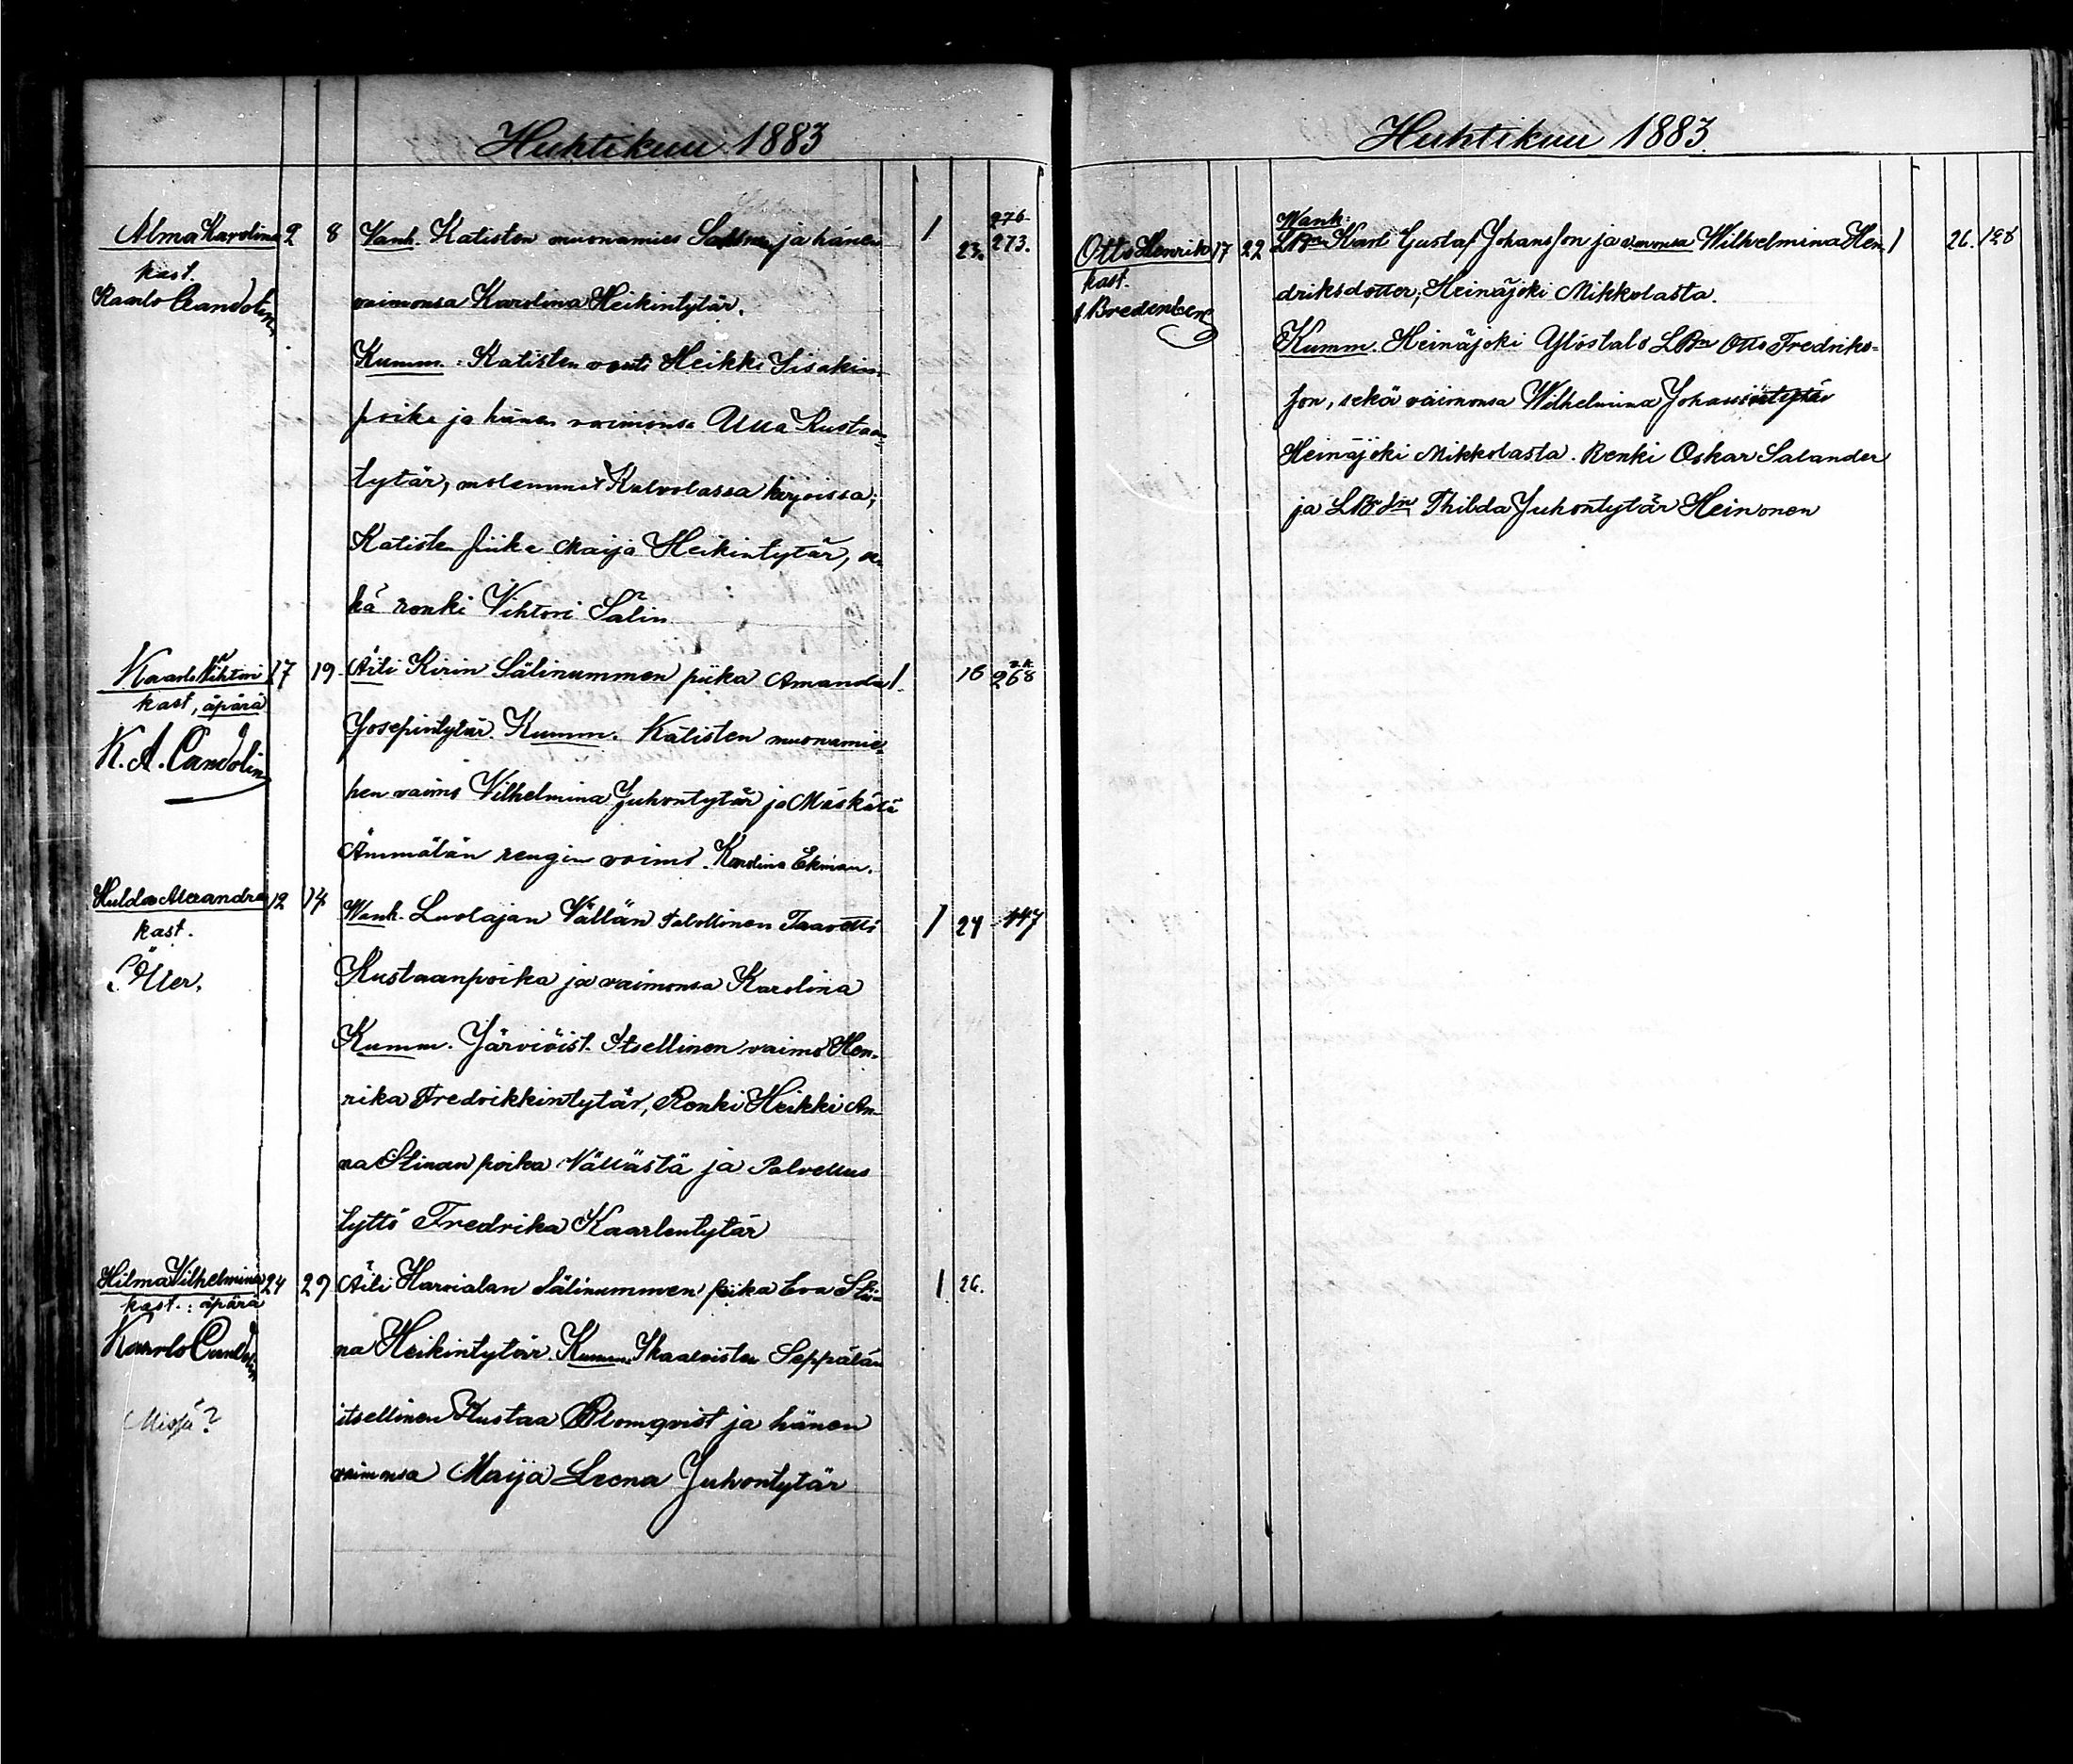 Huhtikuu 1883
Alma Karolina 2 8 Vanh. Katisten muonamies ja hänen 1 23. 276 273.
kast.
Kaarlo Candolin
vaimonsa Karolina Heikintytär.
Kumm.: Katisten vouti Heikki Iisakin-
poika ja hänen vaimonsa Ulla Kustaan-
tytär, molemmat Kalvolassa kirjoissa;
Katisten piika Maija Heikintytär, se-
kä renki Vihtori Sälin
Kaarlo Vihtori 17 19 Äiti Kirin Sälinummen piika Amanda 1. 16 268
kast, äpärä
Josepintytär. Kumm. Katisten muonamie-
K. A. Candolin
hen vaimo Vilhelmina Juhontytär ja Mäskälä
Ämmälän rengin vaimo Karolina Ekman.
Hulda Alexandra 12 14 Wanh. Luolajan Vällän talollinen Taavetti 1 24 147
kast.
Kustaanpoika ja vaimonsa Karolina
Kumm. Järviöist. Itsellinen vaimo Hen-
rika Fredrikkintytär, Renki Heikki An-
na Stinan poika Vällästä ja Palvellus
tyttö Fredrika Kaarlentytär
Hilma Vilhelmina 24 29 Äiti Harvialan Sälinummen piika Eva Stii- 1 26.
kast.: äpärä
Kaarlo Candolin
na Heikintytär. Kumm. Ikaloisten Seppälän
itsellinen Kustaa Blomqvist ja hänen
Missä?
vaimonsa Maija Leena Juhontytär
Huhtikuu 1883.
Wanh:
Otto Henrik 17 22 Karl Gustaf Johansson ja vaimonsa Wilhelmina Hen- 1 26. 128
kast.
Bredenberg
driksdotter, Heinäjoki Mikkolasta.
Kumm. Heinäjoki Ylöstalo Otto Fredriks-
son, sekä vaimonsa Wilhelmina
Heinäjoki Mikkolasta. Renki Oskar Salander
ja Thilda Juhontytär Heinonen